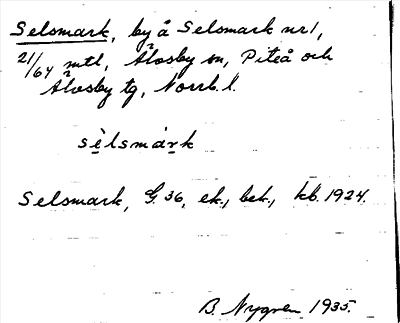 Selsmark, by å Selsmark nr 1,
21/64 mtl, Älvsby sn, Piteå och
Älvsby tg, Norrb. l.
sèlsmárk
Selsmark, G. 36, ek., bek., kb. 1924.
B. Nygren 1935.